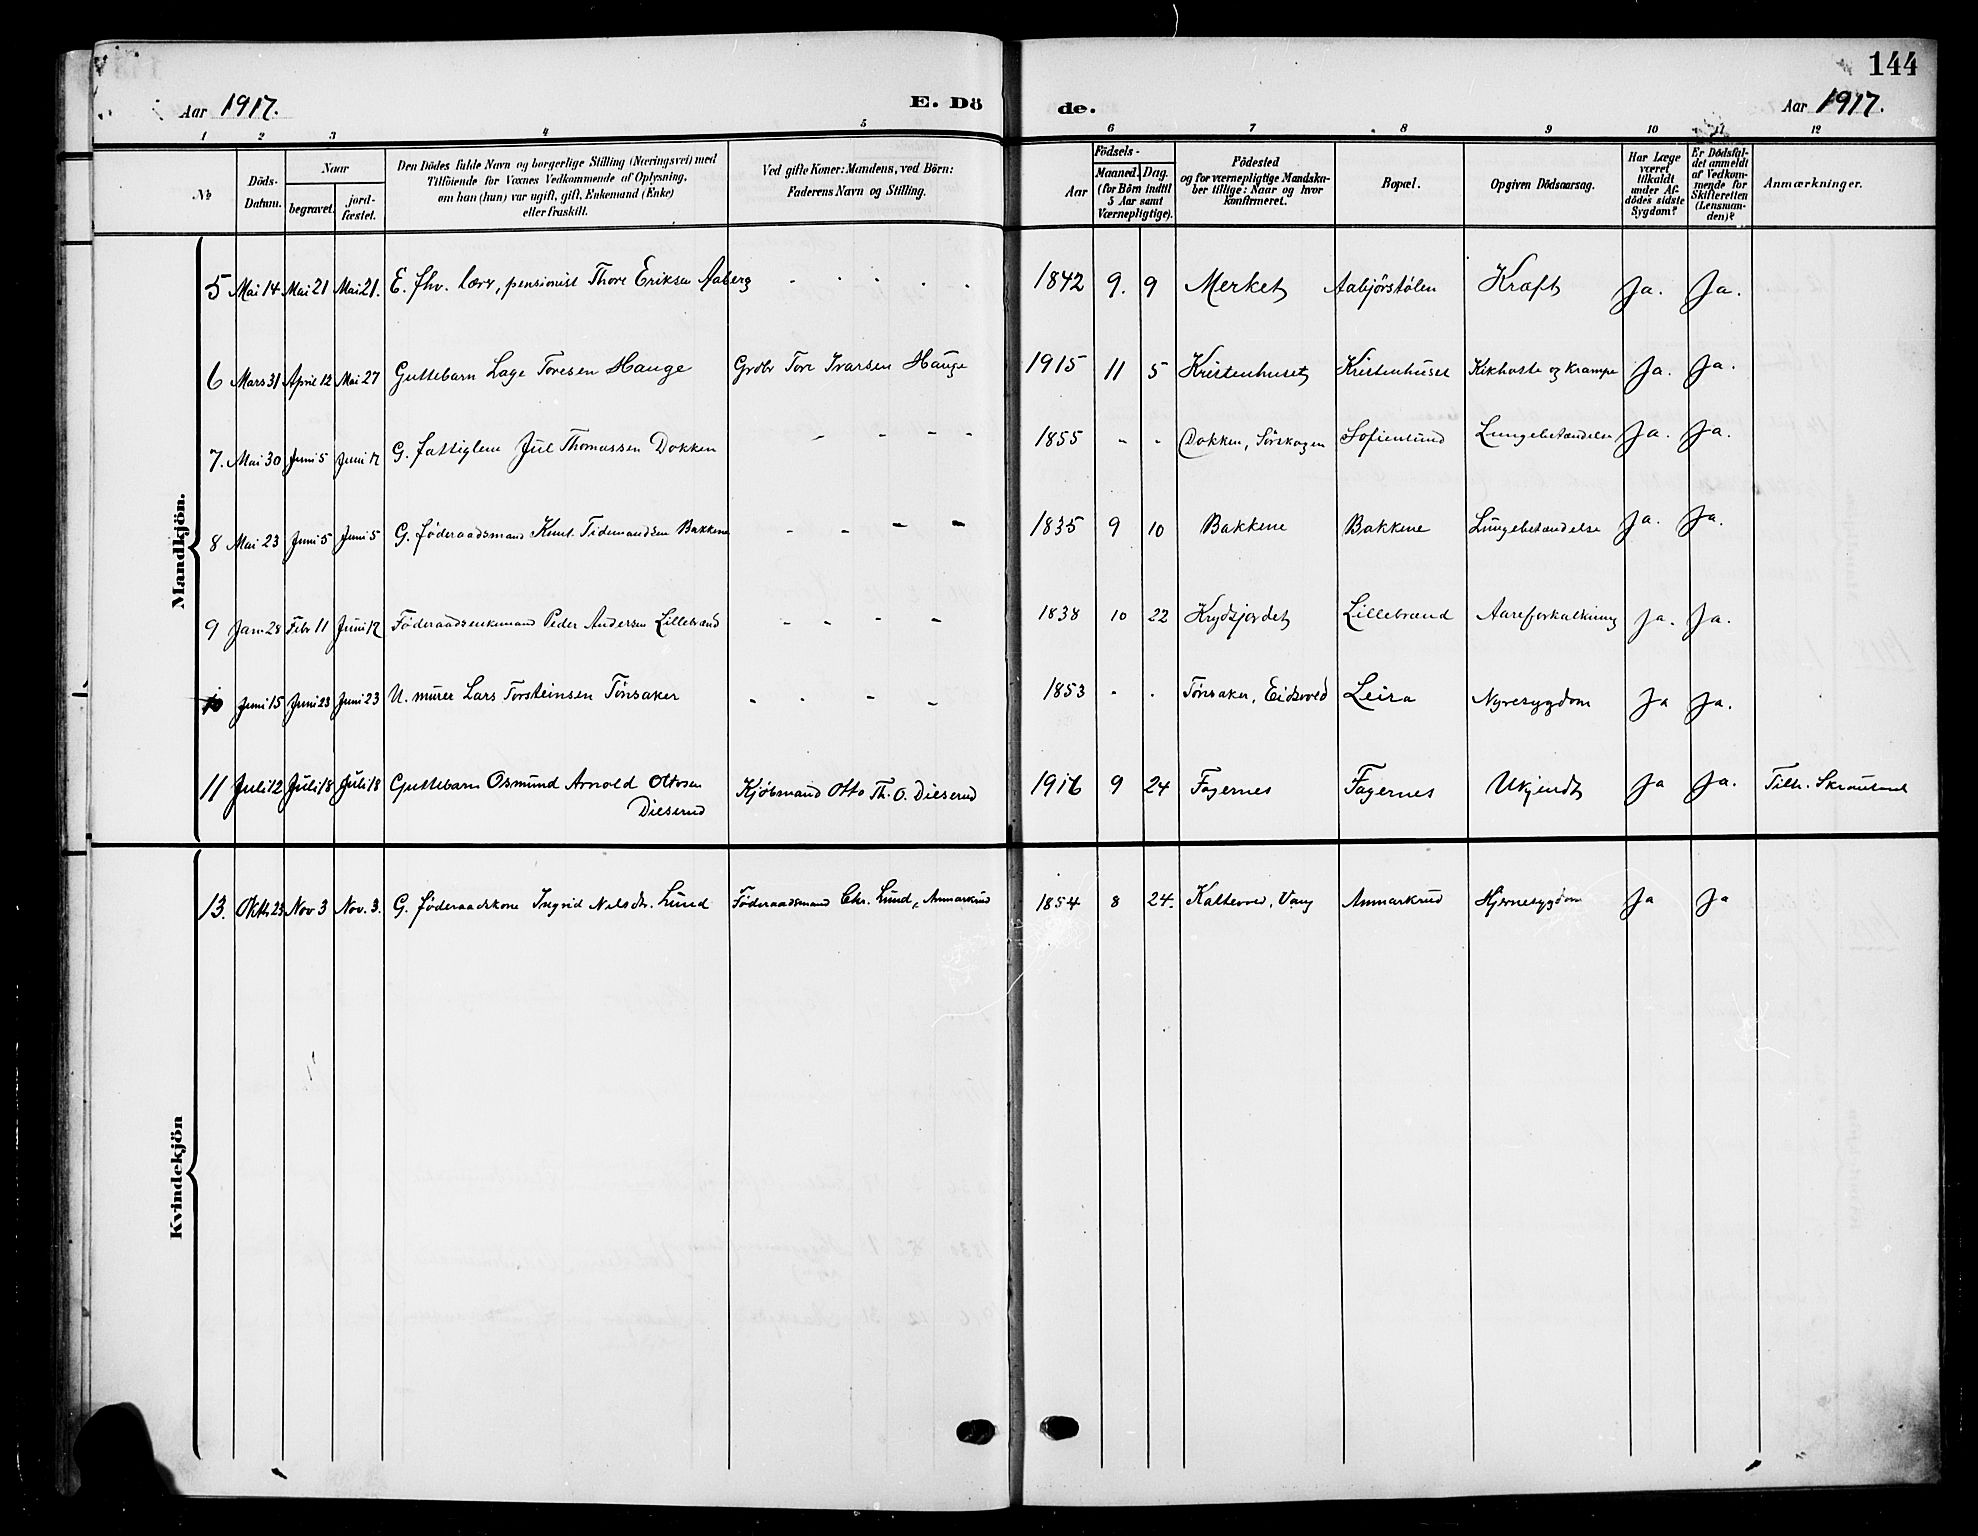 144
Aar 1917. E. Dö de. Aar 1917.
1 2 3 4 5 6 7 8 9 10 11 12
№
Döds-Datum.
Naar
begravet.
jord-fæstet.
Den Dödes fulde Navn og borgerlige Stilling (Næringsvei) med
Tilföiende for Voxnes Vedkommende af Oplysning,
om han (hun) var ugift, gift, Enkemand (Enke)
eller fraskilt.
Ved gifte Koner: Mandens, ved Börn:
Faderens Navn og Stilling.
Födsels-
Aar
Maaned. Dag.
(for Börn indtil
5 Aar samt
Værnepligtige).
Födested
og for værnepligtige Mandska-
ber tillige: Naar og hvor
konfirmeret.
Bopæl.
Opgiven Dödsaarsag.
Har Læge
været
tilkaldt
under Af-
dödes sidste
Sygdom?
Er Dödsfal-
det anmeldt
af Vedkom-
mende for
Skifteretten
(Lensman-
den)?
Anmærkninger.
Mandkjön.
5 Mai 14 Mai 21 Mai 21. E. fhv. lærer, pensionist Thore Eriksen Aaberg - - - - 1842 9. 9 Merket Aabjörstölen Kræft Ja. Ja.
6 Mars 31 April 12 Mai 27 Guttebarn Lage Toresen Hauge Grdbr Tore Ivarsen Hauge 1915 11 5 Kristenhuset Kristenhuset Kikhoste og krampe Ja. Ja.
7. Mai 30 Juni 5 Juni 17 G. fattiglem Jul Thomassen Dokken - - - - 1855 - - Dokken, Sörskogen Sofienlund Lungebetændelse Ja. Ja.
8 Mai 23 Juni 5 Juni 5 G. föderaadsmand Knut Tidemandsen Bakkene - - - - 1835 9 10 Bakkene Bakkene Lungebetændelse Ja. Ja.
9 Jan. 28 Febr 11 Juni 17 Föderaadsenkemand Peder Andersen Lillebrænd - - - - 1838 10 22 Lillebrænd Aareforkalkning Ja. Ja.
10 Juni 15 Juni 23 Juni 23 U. murer Lars Torsteinsen Tönsaker - - - - 1853 - - Tönsaker, Eidsvold Leira Nyresygdom Ja Ja.
11 Juli 12 Juli 18 Juli 18 Guttebarn Osmund Arnold Ottosen
Dieserud Kjöbmand Otto Th. O. Dieserud 1916 9 24 Fagernes Fagernes Ukjendt Ja Ja. Tilh. Skrautvaal
Kvindekjön
13. Oktbr 23 Nov 3 Nov. 3. G. föderaadskone Ingrid Nilsdtr. Lund Föderaadsmand Chr. Lund, Anmarkrud 1854 8 24. Vang Anmarkrud Hjernesygdom Ja Ja